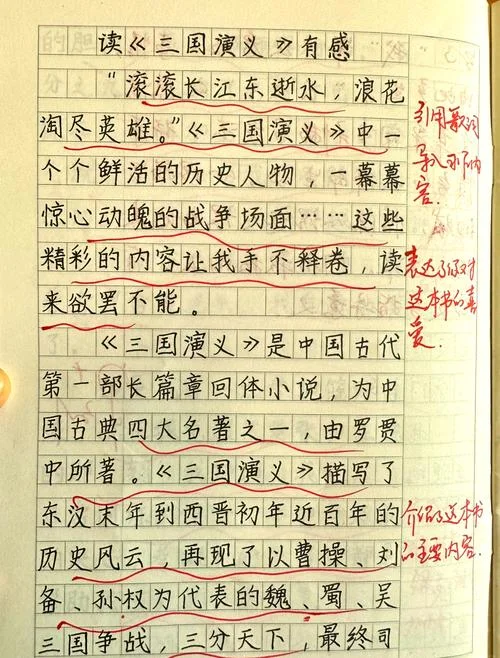 读《三国演义》有感
“滚滚长江东逝水，浪花
淘尽英雄。”《三国演义》中一
个个鲜活的历史人物，一幕幕
惊心动魄的战争场面……这些
精彩的内容让我手不释卷，读
来欲罢不能。
《三国演义》是中国古代
第一部长篇章回体小说，为中
国古典四大名著之一，由罗贯
中所著。《三国演义》描写了
东汉末年到西晋初年近百年的
历史风云，再现了以曹操、刘
备、孙权为代表的魏、蜀、吴
三国争战，三分天下，最终司
引用歌词
导入
内
容.
表达了
对
这本书的喜
爱.
介绍了这本书
的主要内容.